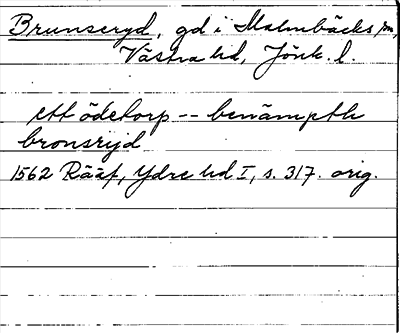 Brunseryd, gd i Malmbäcks sn,
Västra hd, Jönk. l.
ett ödetorp -- benämpth
bronsryd
1562 Rääf, Ydre hd I, s. 317. orig.